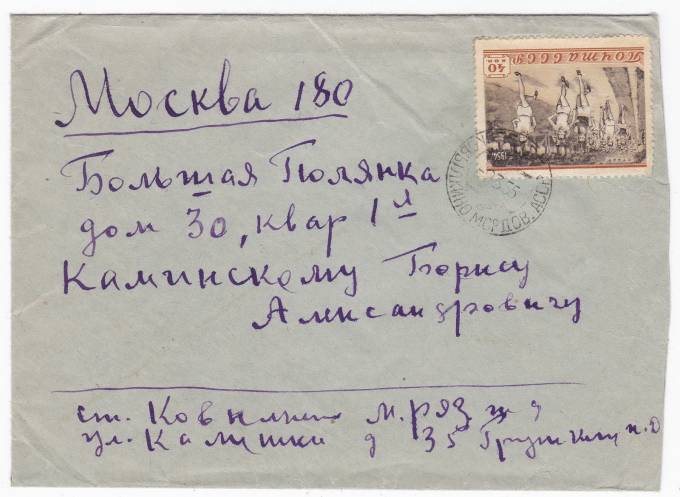 Москва 180
Большая Полянка
дом 30, квар 1 л
Каминскому Борису
Александровичу
ст. Ковылкино М. ряз ж д
ул. Калинина д 35 п.о
Почта СССР
40
КОП
1954
МОРДОВ. АССР